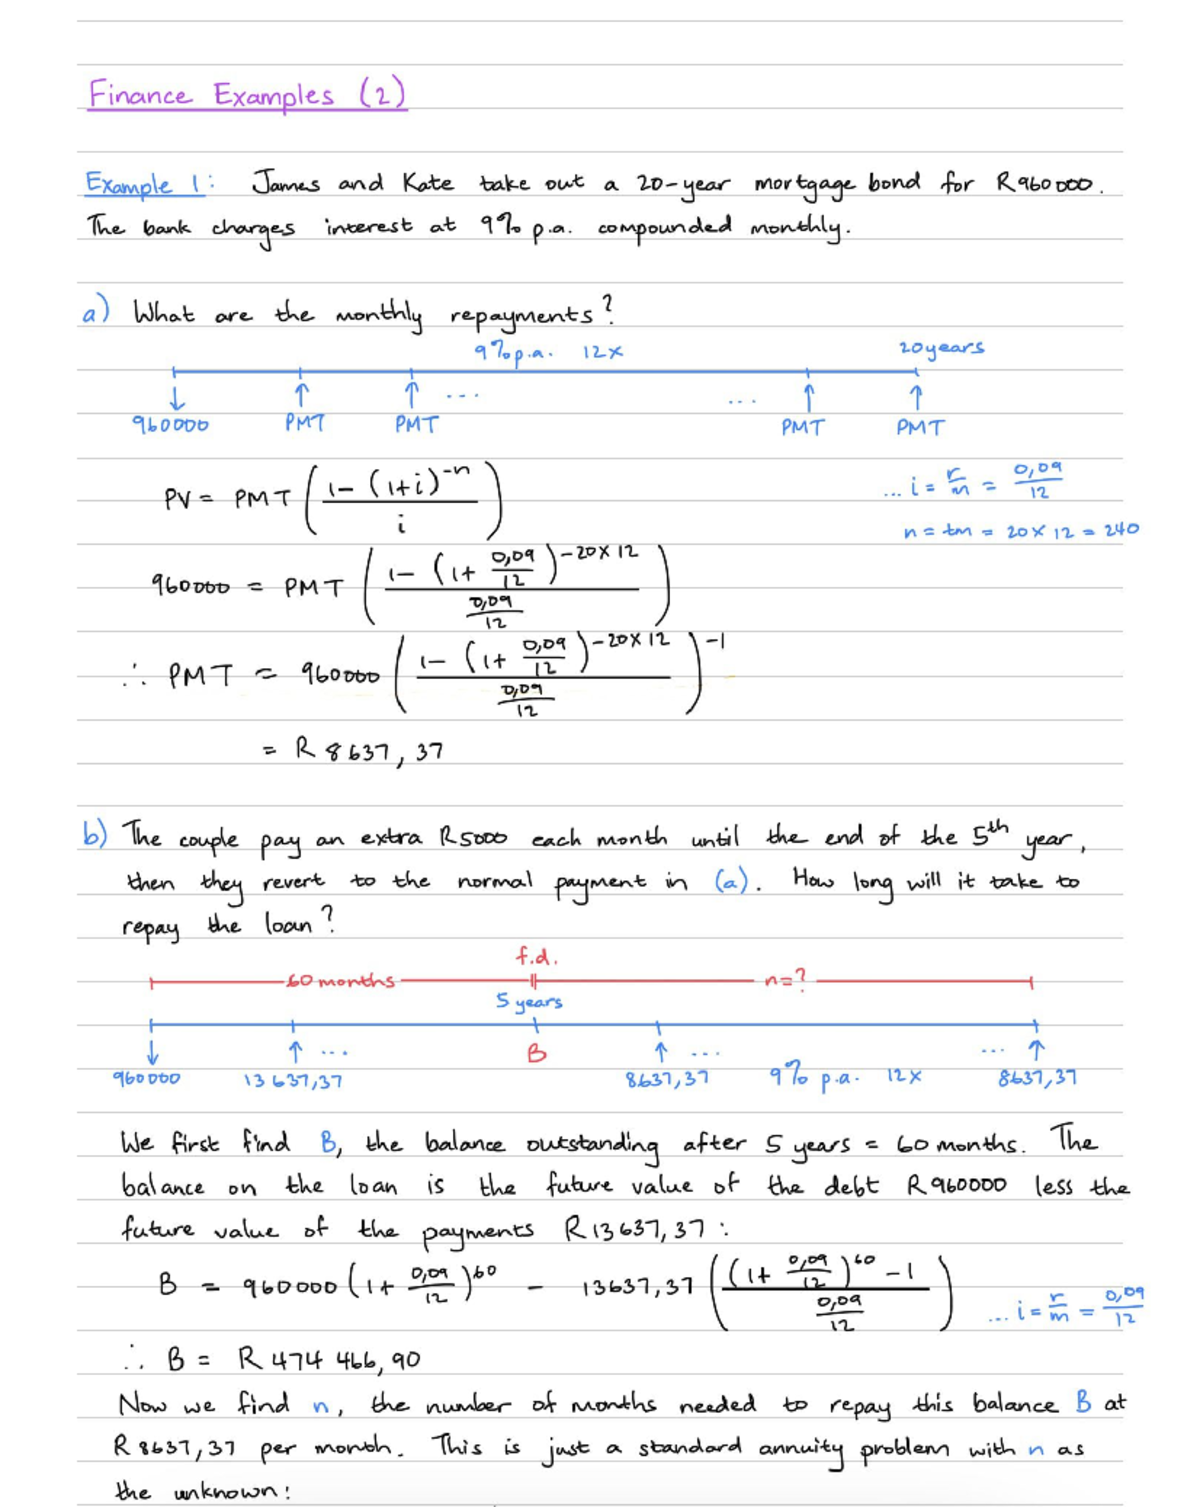 Finance Examples (2)
Example 1: James and Kate take out a 20-year mortgage bond for R960000.
The bank charges interest at 9% p.a. compounded monthly.
a) What are the monthly repayments?
9% p.a. 12x 20 years
960000 PMT PMT ... ... PMT PMT
PV = PMT ( (1 - (1+i)^-n) / i ) ... i = r/m = 0,09/12
n = tm = 20 x 12 = 240
960000 = PMT ( (1 - (1 + 0,09/12)^-20x12) / (0,09/12) )
∴ PMT = 960000 ( (1 - (1 + 0,09/12)^-20x12) / (0,09/12) )^-1
= R 8637,37
b) The couple pay an extra R5000 each month until the end of the 5th year,
then they revert to the normal payment in (a). How long will it take to
repay the loan?
f.d.
60 months n=?
5 years
... B ... ...
960000 13 637,37 8637,37 9% p.a. 12x 8637,37
We first find B, the balance outstanding after 5 years = 60 months. The
balance on the loan is the future value of the debt R960000 less the
future value of the payments R13637,37:
B = 960000 (1 + 0,09/12)^60 - 13637,37 ( ((1 + 0,09/12)^60 - 1) / (0,09/12) ) ... i = r/m = 0,09/12
∴ B = R 474 466,90
Now we find n, the number of months needed to repay this balance B at
R 8637,37 per month. This is just a standard annuity problem with n as
the unknown: